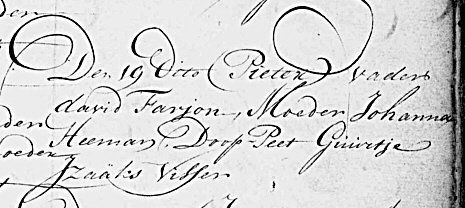 Den 19 Dito (Pieter) Vader
david Farjon, Moeder Johanna
Heeman, Doop Peet Guürtje
Izaäks Visser